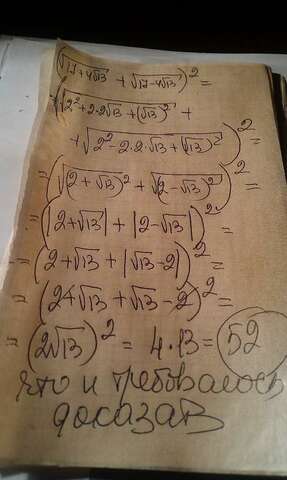 (√17+4√13 + √17-4√13)² =
= (√2²+2·2√13+(√13)² +
+ √2²-2·2·√13+(√13)²)² =
= (√(2+√13)² + √(2-√13)²)² =
= (|2+√13| + |2-√13|)² =
= (2+√13 + |√13-2|)² =
= (2+√13 + √13-2)² =
= (2√13)² = 4·13 = 52
что и требовалось
доказать